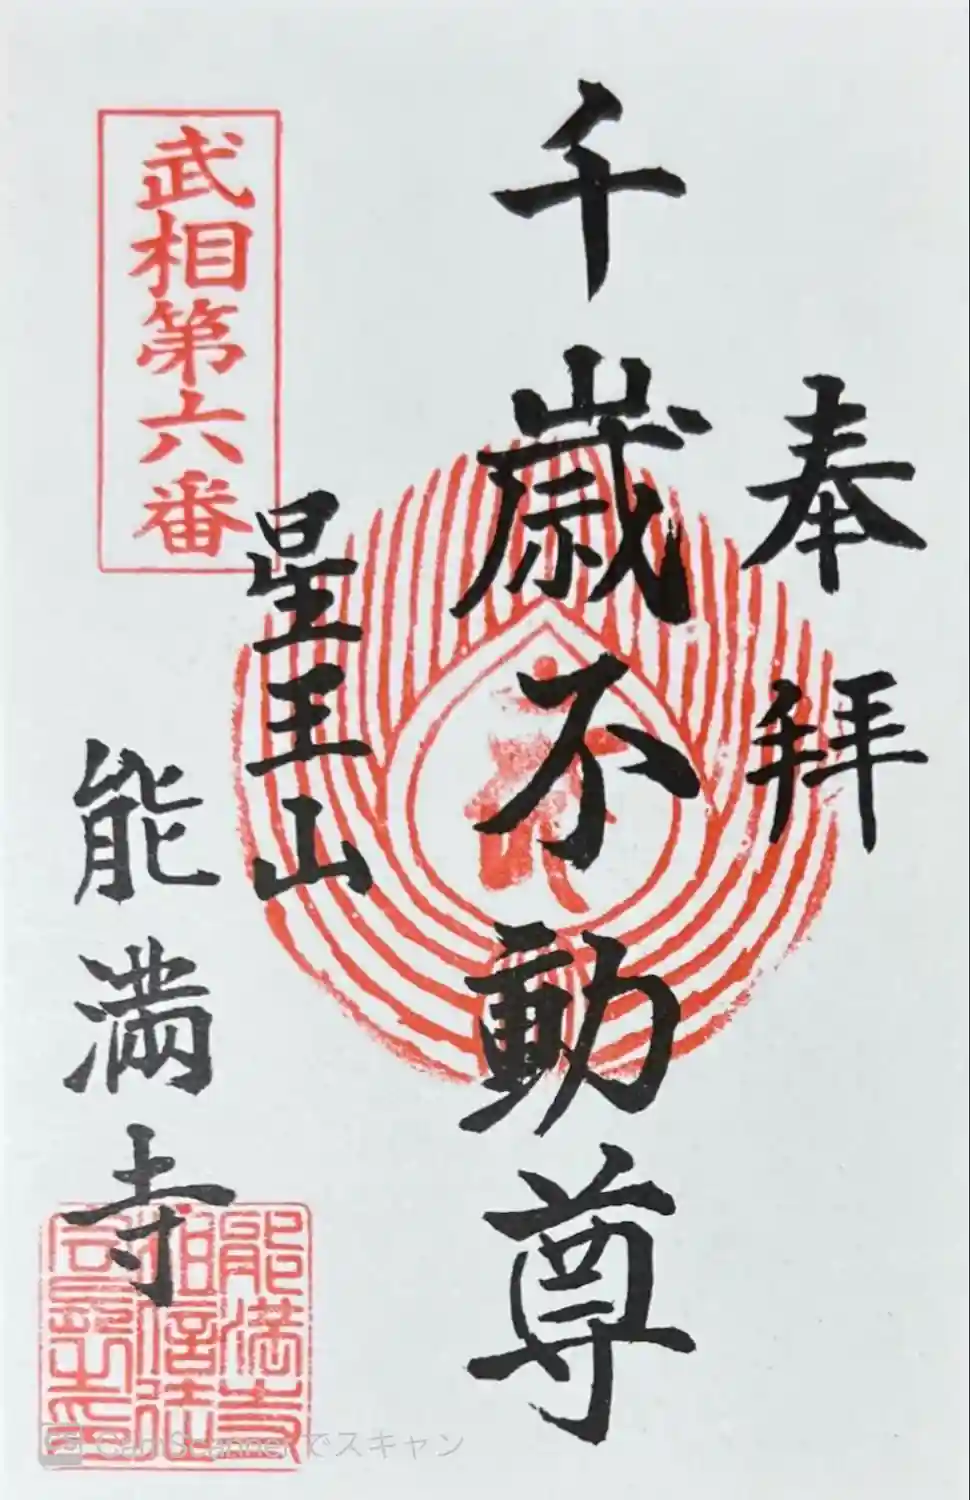 奉拝
千歳不動尊
武相第六番
星王山
能満寺
CamScannerでスキャン